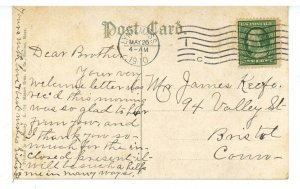 Post Card.
MAY 26
4-AM
1910
Dear Brother—
Your very
welcome letter was
rec'd this morning
was so glad to hear
from you and
I thank you so
much for the in-
closed present it
will be such a help to
me in many ways
Mr James Keefe.
94 Valley St
Bristol
Conn—